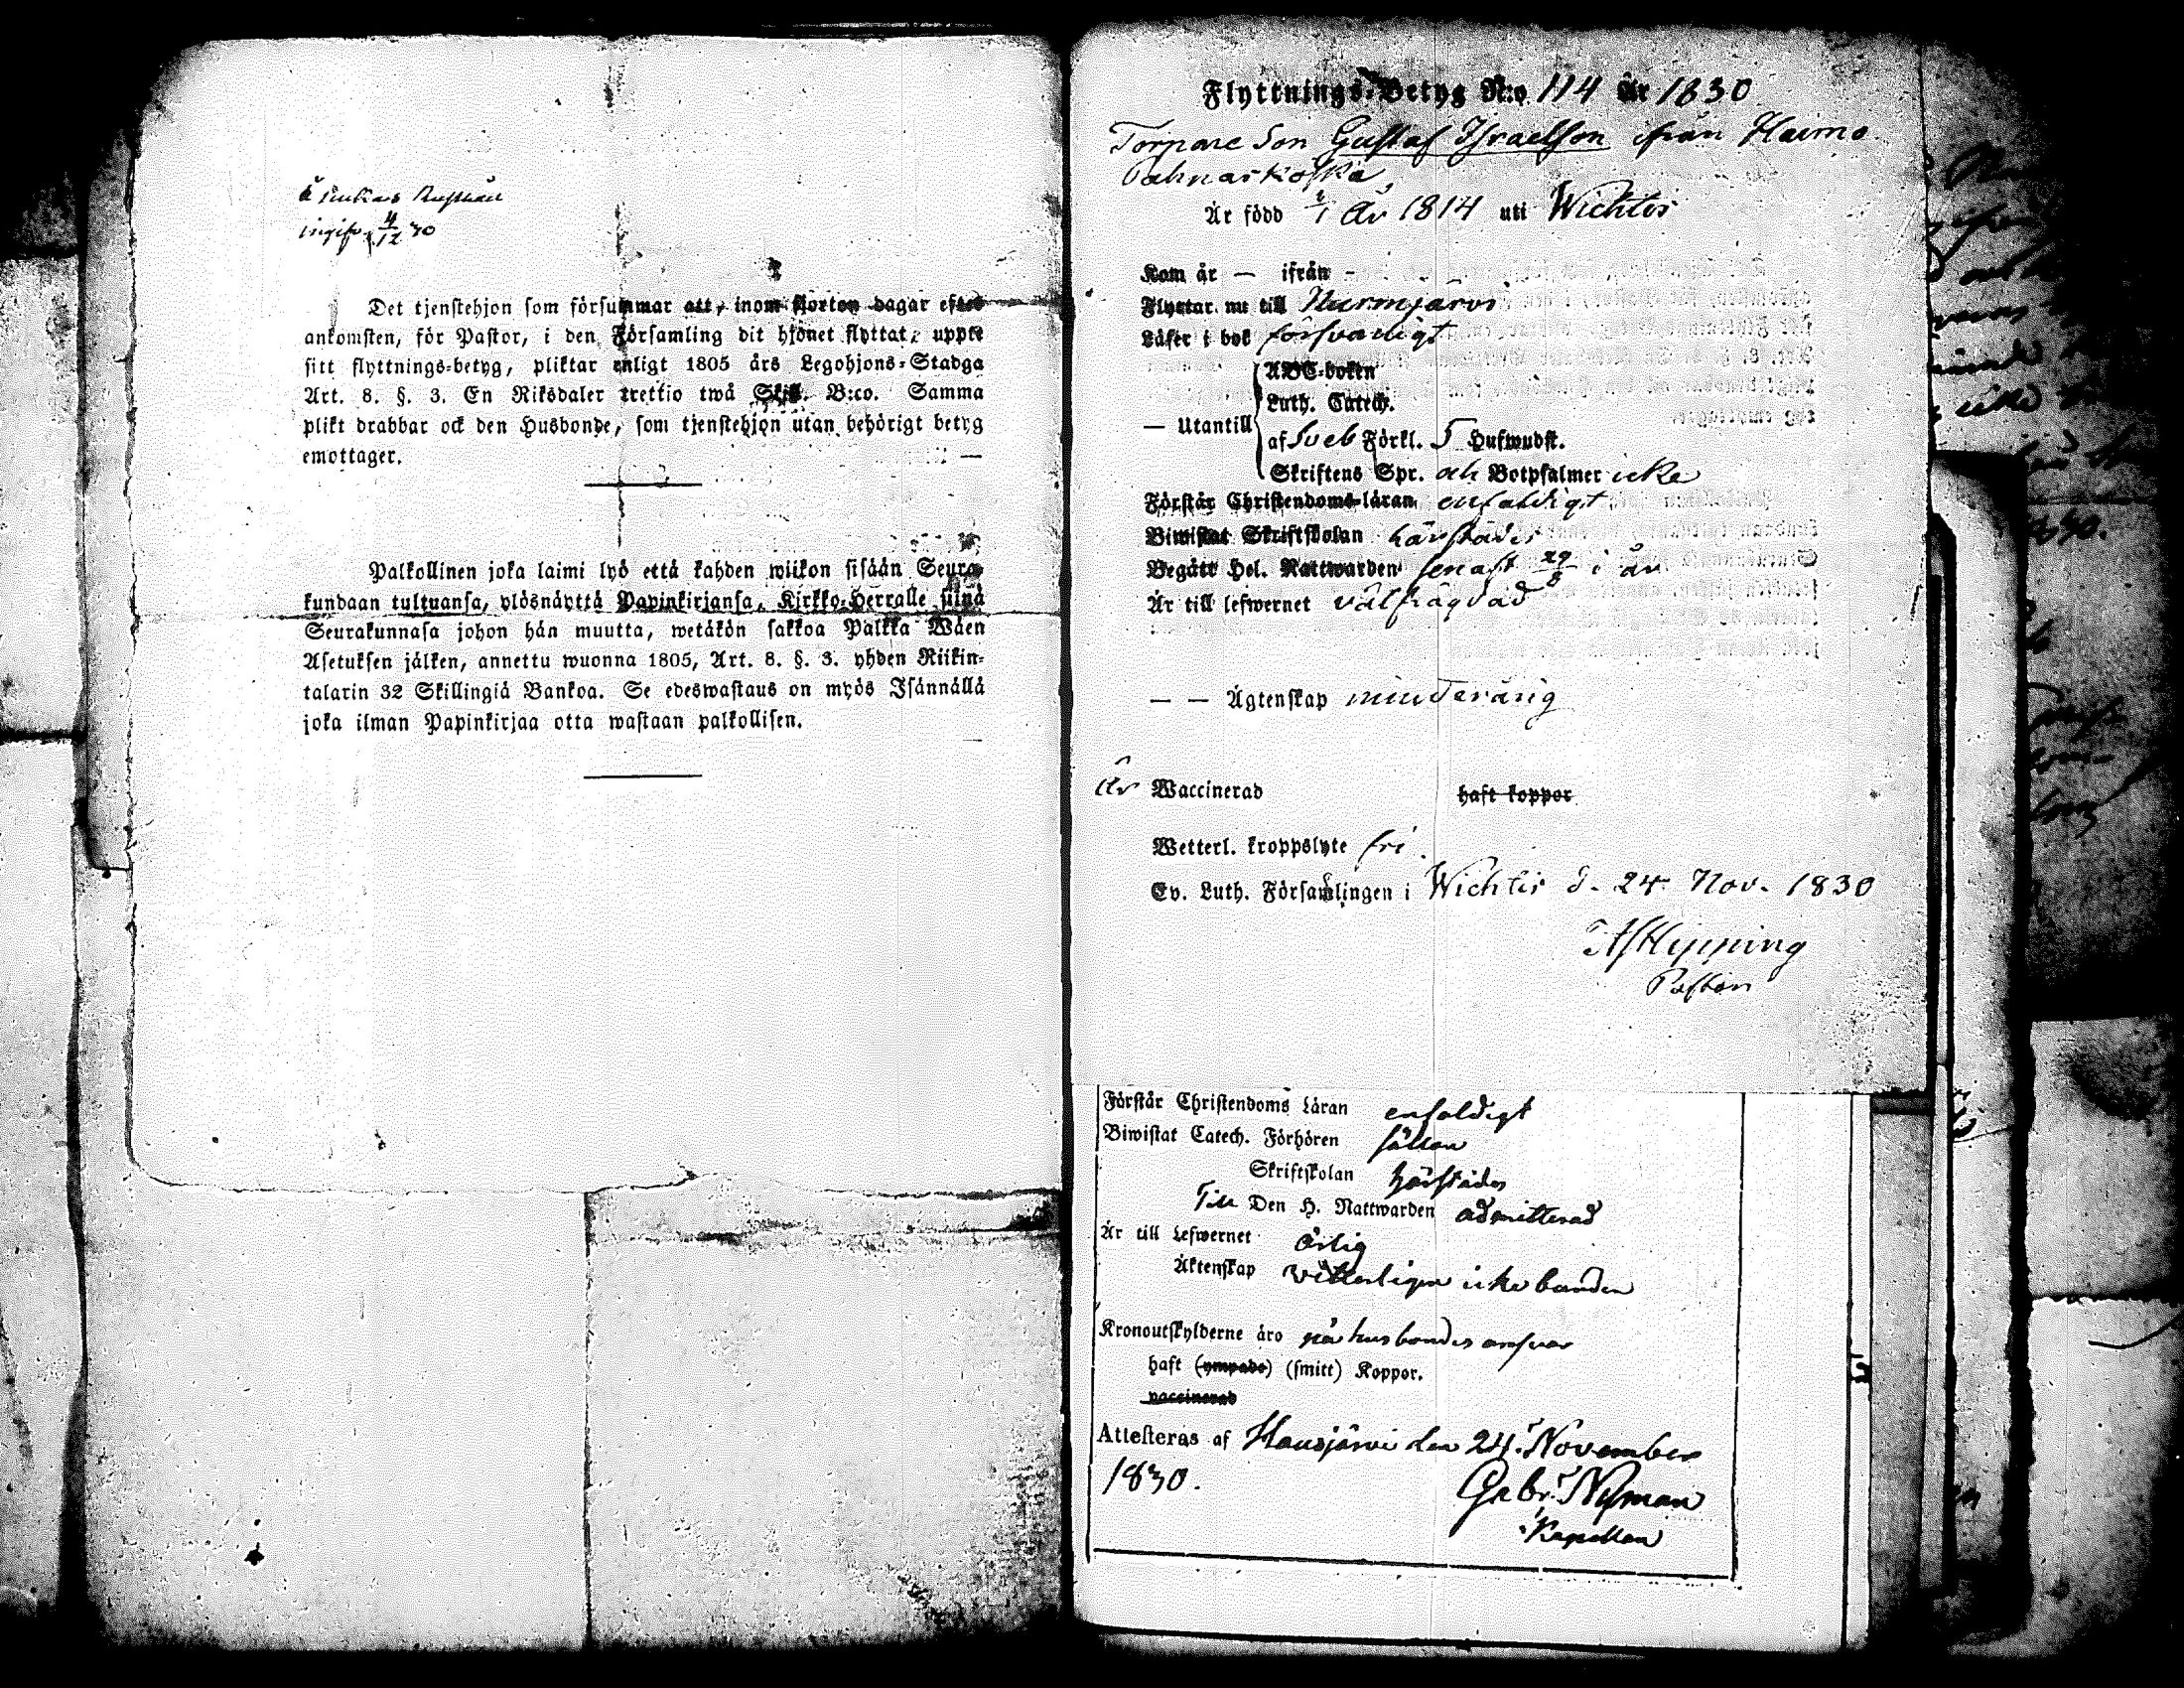 ingifv. 4/12 30
Det tjenstehjon som försummar att, inom fjorton dagar efter
ankomsten, för Pastor, i den Församling dit hjonet flyttat, uppte
sitt flyttnings-betyg, pliktar enligt 1805 års Legohjons-Stadga
Art. 8. §. 3. En Riksdaler trettio twå Skill. B:co. Samma
plikt drabbar ock den Husbonde, som tjenstehjon utan behörigt betyg
emottager.
Palkollinen joka laimi lyö että kahden wiikon sisään Seura-
kundaan tultuansa, ylösnäyttä Papinkirjansa, Kirkko-Herralle siinä
Seurakunnasa johon hän muutta, wetäkön sakkoa Palkka Wäen
Asetuksen jälken, annettu wuonna 1805, Art. 8. §. 3. yhden Riikin-
talarin 32 Skillingiä Bankoa. Se edeswastaus on myös Isännällä
joka ilman Papinkirjaa otta wastaan palkollisen.
Flyttnings-Betyg N:o 114 År 1830
Torpare Son Gustaf Israelson ifrån Haimo
Pahnarkoska
Är född 2/1 År 1814 uti Wichtis
Kom år — ifrån -
Flyttar nu till Nurmjärvi
Läser i bok försvarligt
ABC-boken
Luth. Catech.
— Utantill af Sveb Förkl. 5 Hufwudst.
Skriftens Spr. och Botpsalmer icke
Förstår Christendoms-läran enfaldigt
Biwistat Skriftskolan härstädes
Begått Hel. Nattwarden senast 29/8 i år
Är till lefwernet välfrägdad
— — Ägtenskap minderårig
Är Waccinerad haft koppor
Wetterl. kroppslyte fri.
Ev. Luth. Församlingen i Wichtis d. 24 Nov. 1830
Hipping
Pastor
Förstår Christendoms Läran enfaldigt
Biwistat Catech. Förhören sällan
Skriftskolan härstädes
Till Den H. Nattwarden admitterad
Är till Lefwernet ärlig
Äktenskap vitterligen icke bunden
Kronoutskylderne äro på husbondes answar
haft (ympade) (smitt) Koppor.
vaccinerad
Attesteras af Hausjärvi den 24. November
1830.
Gabr. Nyman
Kapellan